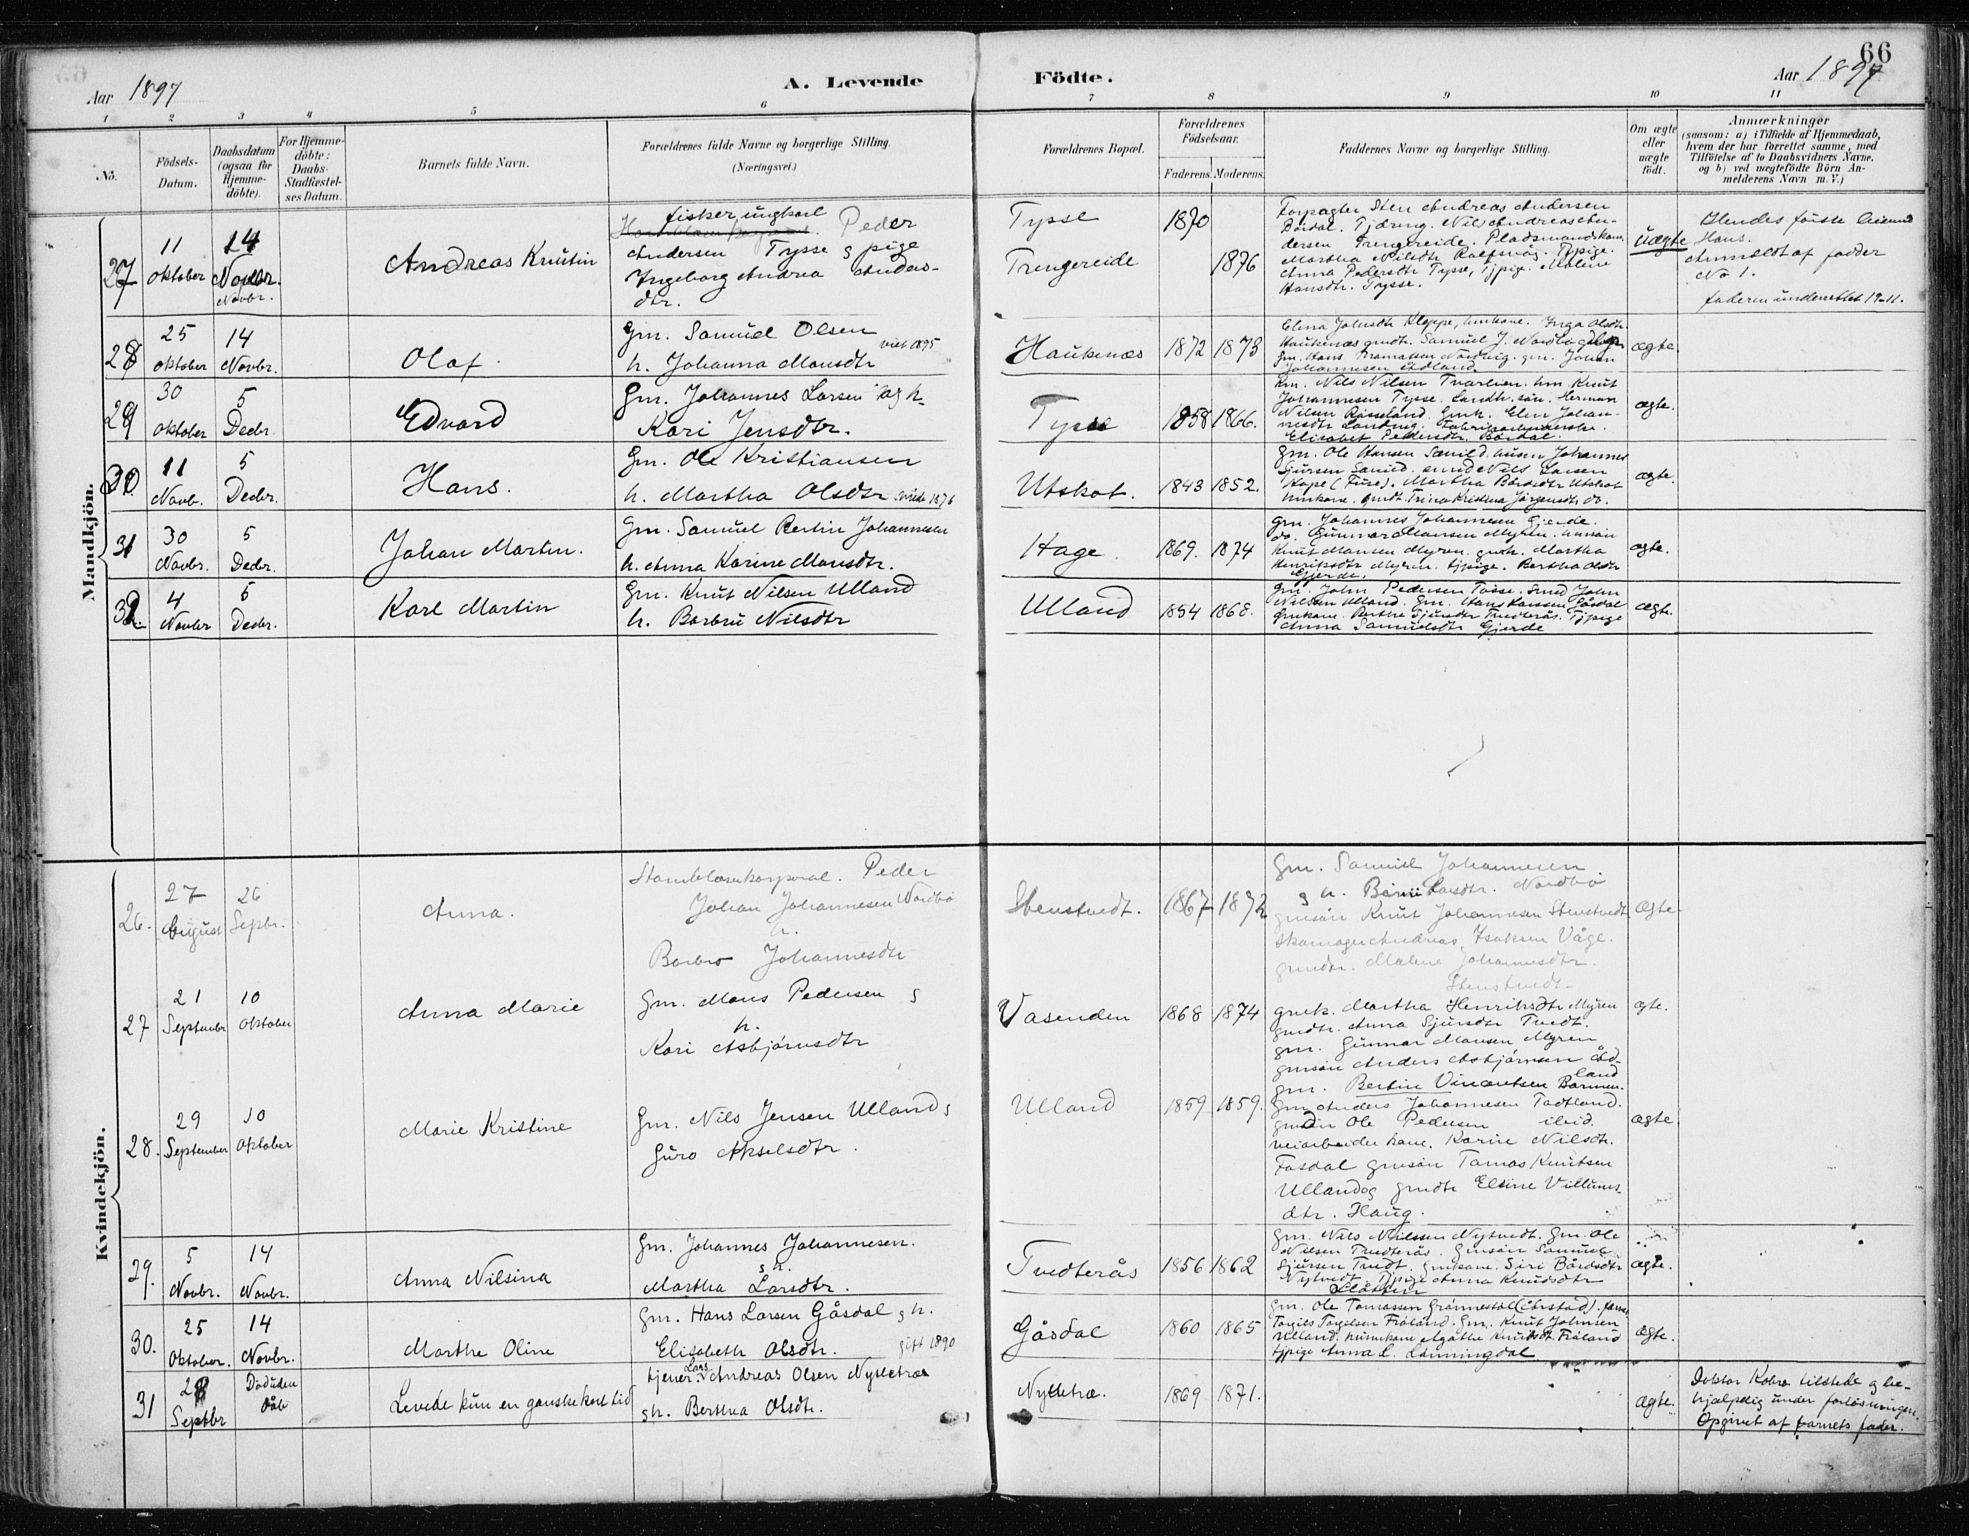 66
Aar 1897
A. Levende Födte.
Aar 1897
1 2 3 4 5 6 7 8 9 10 11
No.
Födsels-Datum.
Daabsdatum (ogsaa for Hjemme-döbte).
For Hjemme-döbte: Daabs-Stadfæstel-ses Datum.
Barnets fulde Navn.
Forældrenes fulde Navne og borgerlige Stilling.
(Næringsvei.)
Forældrenes Bopæl.
Forældrenes Födselsaar.
Faderens. Moderens.
Faddernes Navne og borgerlige Stilling.
Om ægte eller uægte födt.
Anmærkninger
(saasom: a) i Tilfælde af Hjemmedaab,
hvem der har forrettet samme, med
Tilföielse af to Daabsvidners Navne,
og b) ved uægtefödte Börn An-
melderens Navn m. V.)
Mandkjön.
27
11 oktober
14 Novbr.
Andreas Knutin
fisker, ungkarl Peder
Andersen Tysse g pige
Ingeborg Andrea Anders-
dtr.
Tysse
Trengereide
1870
1876
Forpagter Sten Andreas Andersen
Nils Andreas An-
dersen Trengereide. Pladsmandskone
Martha Nilsdtr
Anna Pedersdtr Tysse, Tjpige. Malene
Hansdtr. Tysse.
uægte
Hendes förste
Hans.
Anmeldt af fadder
No 1.
faderen underrettet 19-11.
28
25 oktober
14 Novbr.
Olaf.
Gm. Samuel Olsen
h. Johanna Monsdtr viet 1895
Haukenæs
1872 1873
Elena Johnsdtr Kleppe, Inga Olsdtr.
Haukenæs gmdtr. Samuel J. Nordbö
Gm. Hans Nordvig. gm. Johan
Johannesen Ådland
ægte
29
30 oktober
5 Decbr.
Edvard
Gm. Johannes Larsen og h.
Kari Jensdtr.
Tysse
1858 1866.
Nils Nilsen Knut
Johannesen Tysse. Herman
Nilsen Röseland. Gmk. Elen Johan-
nesdtr Landvig. Fabrikarbeiderske
Elisabet Pedersdtr. Bördal.
ægte.
30
11 Novb.
5 Decbr.
Hans.
Gm. Ole Kristiansen
h. Martha Olsdtr. viede 1876
Utskot.
1843 1852.
Gm. Ole Hansen Johannes
Sjursen Nils Larsen
Kope (Fuse). Martha Bårdsdtr Utskot
gmdt. Trina Kristina Jörgensdtr. do.
ægte.
31
30 Novbr.
5 Decbr.
Johan Martin.
Gm. Samuel Bertin Johannesen
h. Anna Karine Monsdtr.
Hage.
1869. 1874
Gm. Johannes Johannesen Gjerde.
do. Gunnar Monsen Myren. gmsön
Knut Monsen Myren. gmk. Martha
Henriksdtr Myren. tjpige. Bertha Olsdtr
Gjerde.
ægte.
32.
4 Novbr
5 Decbr.
Karl Martin
Gm. Knut Nilsen Ulland
h. Barbru Nilsdtr
Ulland
1854 1868.
Gm. John Pedersen John
Nilsen Ulland. Gm. Hans Larsen Gåsdal
Gmkone. Berthe Sjursdtr Tvedterås. Tjpige
Anna Samuelsdtr Gjerde
ægte.
Kvindekjön.
26.
27 August
26 Septbr.
Anna.
Peder
Johan Johannesen Nordbö
h.
Barbro Johannesdtr
Stenstvedt.
1867 1872
Gm. Samuel Johannesen
g h. Larsdtr. Nordbö
gmsön Knut Johannesen Stenstvedt
skomager Andreas Isaksen Våge.
gmdtr. Malene Johannesdtr.
Stenstvedt.
ægte
27
21 September
10 oktober
Anna Marie
Gm. Mons Pedersen g
h.
Kari Asbjörnsdtr
Vasenden
1868 1874
gmk. Martha Henriksdtr Myren
gmdtr. Anna Sjursdtr Tvedt.
gm. Gunnar Monsen Myren
gmsön Anders Asbjörnsen Åd-
land
ægte.
28.
29 September
10 oktober
Marie Kristine
Gm. Nils Jensen Ulland g
Guro Akselsdtr.
Ulland
1859 1859.
gm. Bertin Vincentsen Barmen.
Gm. Anders Johannesen Tadtland.
gmsön Ole Pedersen ibid.
veiarbeider kone. Karin Nilsdtr.
Fosdal gmsön Tomas Knutsen
Ulland og gmdtr Elsine Villums
dtr. Haug.
ægte.
29.
5 Novbr.
14 Novbr.
Anna Nilsina
Gm. Johannes Johannesen.
g h.
Martha Larsdtr.
Tvedterås
1856 1862
Gm. Nils Nilssen Nytvedt. Gm. Ole
Nilsen Tvedterås. Gmsön Samuel
Sjursen Tvedt. Gmkone. Siri Bårdsdtr
Nytvedt. Tjpige Anna Knudsdtr
ægte.
30.
25 Oktober.
14 Novbr.
Marthe Oline
Gm. Hans Larsen Gåsdal g h.
Elisabeth Olsdtr. gift 1890
Gåsdal
1860 1865
Gm. Ole Tomassen Grönnestöl
Torgils Torgilsen Fröland. Gm. Knut Johnsen
Ulland. husmkone Agathe Knudsdtr Fröland
tjpige Anna L. Lönningdal
ægte.
31
28 Septbr
Död uden dåb
Levede kun en ganske kort tid
tjener Lars Andreas Olsen Nyttetræ
g h. Bertha Olsdtr.
Nyttetræ.
1869 1871.
ægte.
Doktor tilstede g be-
hjælpelig under forlösningen.
Opgivet af barnets fader.